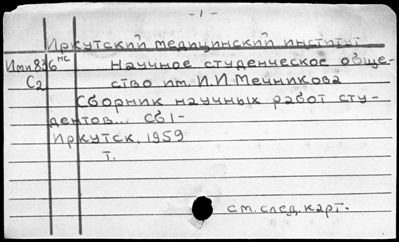 - 1 -
Иркутский медицинский институт
Ими 836 нс Научное студенческое обще-
С2 ство им. И.И.Мечникова
Сборник научных работ сту-
дентов... Сб 1-
Иркутск, 1959
т.
см. след. карт.